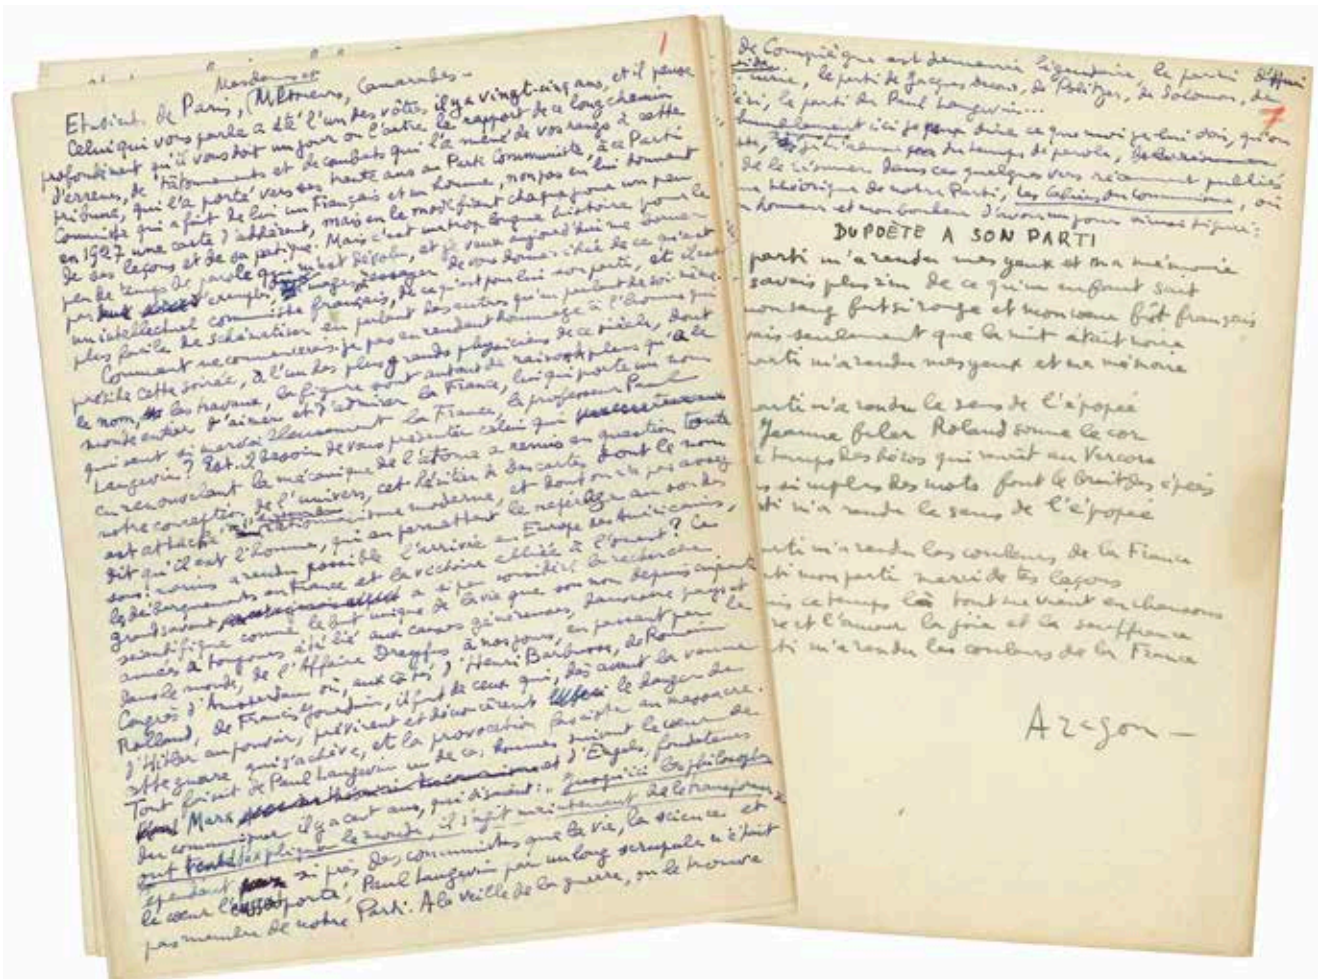 1
Mesdames
Etudiants de Paris, Messieurs, Camarades –
Celui qui vous parle a été l'un des vôtres il y a vingt-cinq ans, et il pense
profondément qu'il vous doit un jour ou l'autre le rapport de ce long chemin
d'erreurs, de tâtonnements et de combats qui l'a mené de vos rangs à cette
tribune, qui l'a porté vers ses trente ans au Parti Communiste, à ce Parti
Communiste qui a fait de lui un Français et un homme, non pas en lui donnant
en 1927 une carte d'adhérent, mais en le modifiant chaque jour un peu
de ses leçons et de sa pratique. Mais c'est une trop longue histoire pour le
peu de temps de parole qui m'est dévolu, et je veux aujourd'hui me borner
par exemple, essayer de vous donner idée de ce qu'est
un intellectuel communiste français, de ce qu'est pour lui son parti, et il est
plus facile de schématiser en parlant des autres qu'en parlant de soi-même.
Comment ne commencerais-je pas en rendant hommage à l'homme qui
préside cette soirée, à l'un des plus grands physiciens de ce siècle, dont
le nom, les travaux, la figure sont autant de raisons de plus qu'a le
monde entier d'aimer et d'admirer la France, lui qui porte un nom
qui sent si merveilleusement la France, le professeur Paul
Langevin ? Est-il besoin de vous présenter celui qui
en renouvelant la mécanique de l'atome a remis en question toute
notre conception de l'univers, cet héritier de Descartes dont le nom
est attaché au rationalisme moderne, et dont on n'a pas assez
dit qu'il est l'homme, qui en permettant le repérage au son des
sous-marins a rendu possible l'arrivée en Europe des Américains,
les débarquements en France et la victoire alliée à l'ouest ? Ce
grand savant a si peu considéré la recherche
scientifique comme le but unique de la vie que son nom depuis cinquante
années a toujours été lié aux causes généreuses, dans notre pays et
dans le monde, de l'Affaire Dreyfus à nos jours, en passant par le
Congrès d'Amsterdam où, aux côtés d'Henri Barbusse, de Romain
Rolland, de Francis Jourdain, il fut de ceux qui, dès avant la venue
d'Hitler au pouvoir, prévirent et dénoncèrent le danger de
cette guerre qui s'achève, et la provocation fasciste au massacre.
Tout faisait de Paul Langevin un de ces hommes suivant le cœur de
Marx et d'Engels, fondateurs
du communisme il y a cent ans, qui disaient : „ Jusqu'ici les philosophes
ont tenté d'expliquer le monde, il s'agit maintenant de le transformer "
Cependant si près des communistes que la vie, la science et
le cœur l'eussent porté, Paul Langevin par un long scrupule n'était
pas membre de notre Parti. A la veille de la guerre, on le trouve
7
de Compiègne est demeurée légendaire, le parti d'
le parti de Jacques Decour, de Politzer, de Solomon, de
le parti de Paul Langevin...
ici je peux dire ce que moi je lui dois, qu'on
du temps de parole,
de le résumer dans ces quelques vers récemment publiés
théorique de notre Parti, les Cahiers du communisme, où
honneur et mon bonheur d'avoir un jour ainsi figuré :
DU POÈTE A SON PARTI
parti m'a rendu mes yeux et ma mémoire
savais plus rien de ce qu'un enfant sait
mon sang fut si rouge et mon cœur fût français
seulement que la nuit était noire
parti m'a rendu mes yeux et ma mémoire
parti m'a rendu le sens de l'épopée
Jeanne filer Roland sonne le cor
temps des héros qui renaît au Vercors
simples des mots font le bruit des épées
m'a rendu le sens de l'épopée
parti m'a rendu les couleurs de la France
mon parti merci de tes leçons
ce temps là tout me vient en chansons
et l'amour la joie et la souffrance
m'a rendu les couleurs de la France
Aragon –